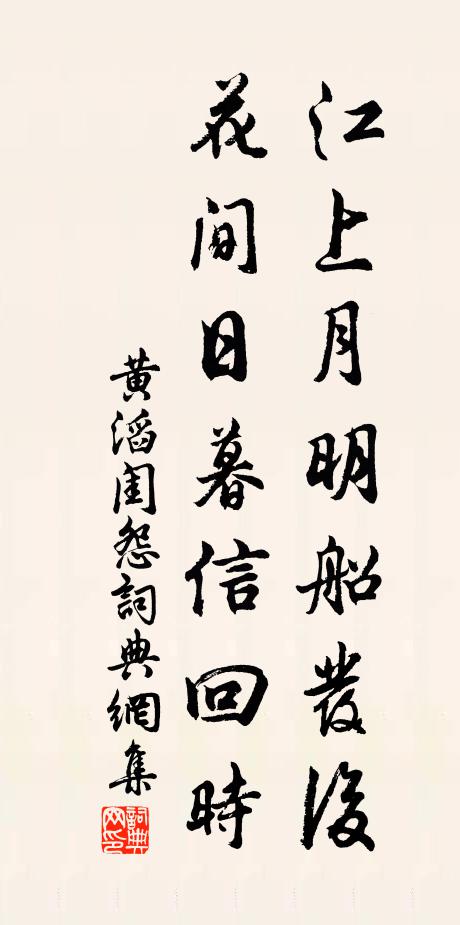 江上月明船發後
花間日暮信回時
黃滔閨怨詞典網集
詞典網印